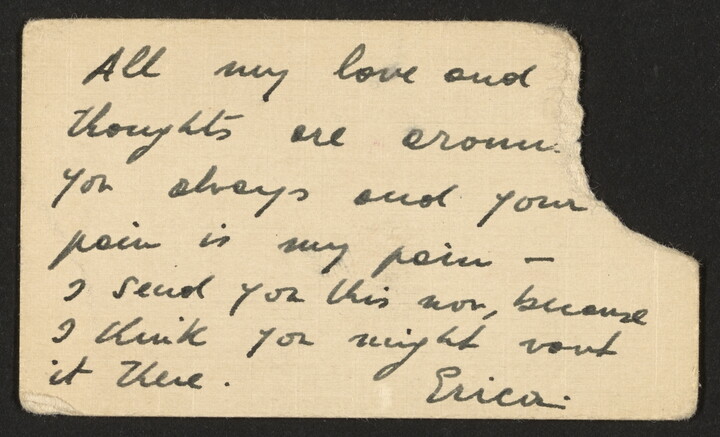 All my love and
thoughts are aroun
you always and your
pain is my pain –
I send you this now, because
I think you might want
it there.
Erica.